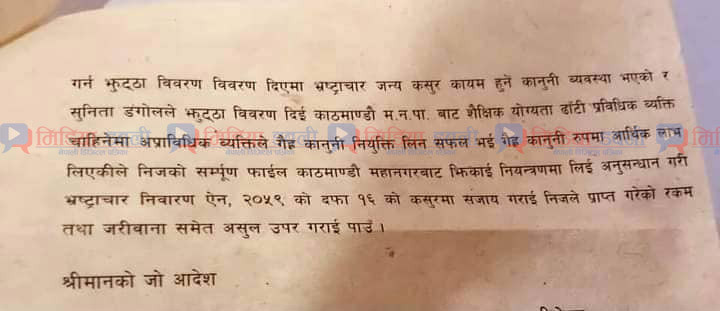 गर्न झुट्ठा विवरण विवरण दिएमा भ्रष्ट्राचार जन्य कसुर कायम हुने कानुनी व्यवस्था भएको र
सुनिता डंगोलले झुट्ठा विवरण दिई काठमाण्डौ म.न.पा. बाट शैक्षिक योग्यता ढाँटी प्रविधिक व्यक्ति
चाहिनेमा अप्राविधिक व्यक्तिले गैह्र कानुनी नियुक्ति लिन सफल भई गैह्र कानुनी रुपमा आर्थिक लाभ
लिएकीले निजको सर्म्पूण फाईल काठमाण्डौ महानगरबाट झिकाई नियन्त्रणमा लिई अनुसन्धान गरी
भ्रष्ट्राचार निवारण ऐन, २०५९ को दफा १६ को कसुरमा सजाय गराई निजले प्राप्त गरेको रकम
तथा जरीवाना समेत असुल उपर गराई पाउँ ।
श्रीमानको जो आदेश